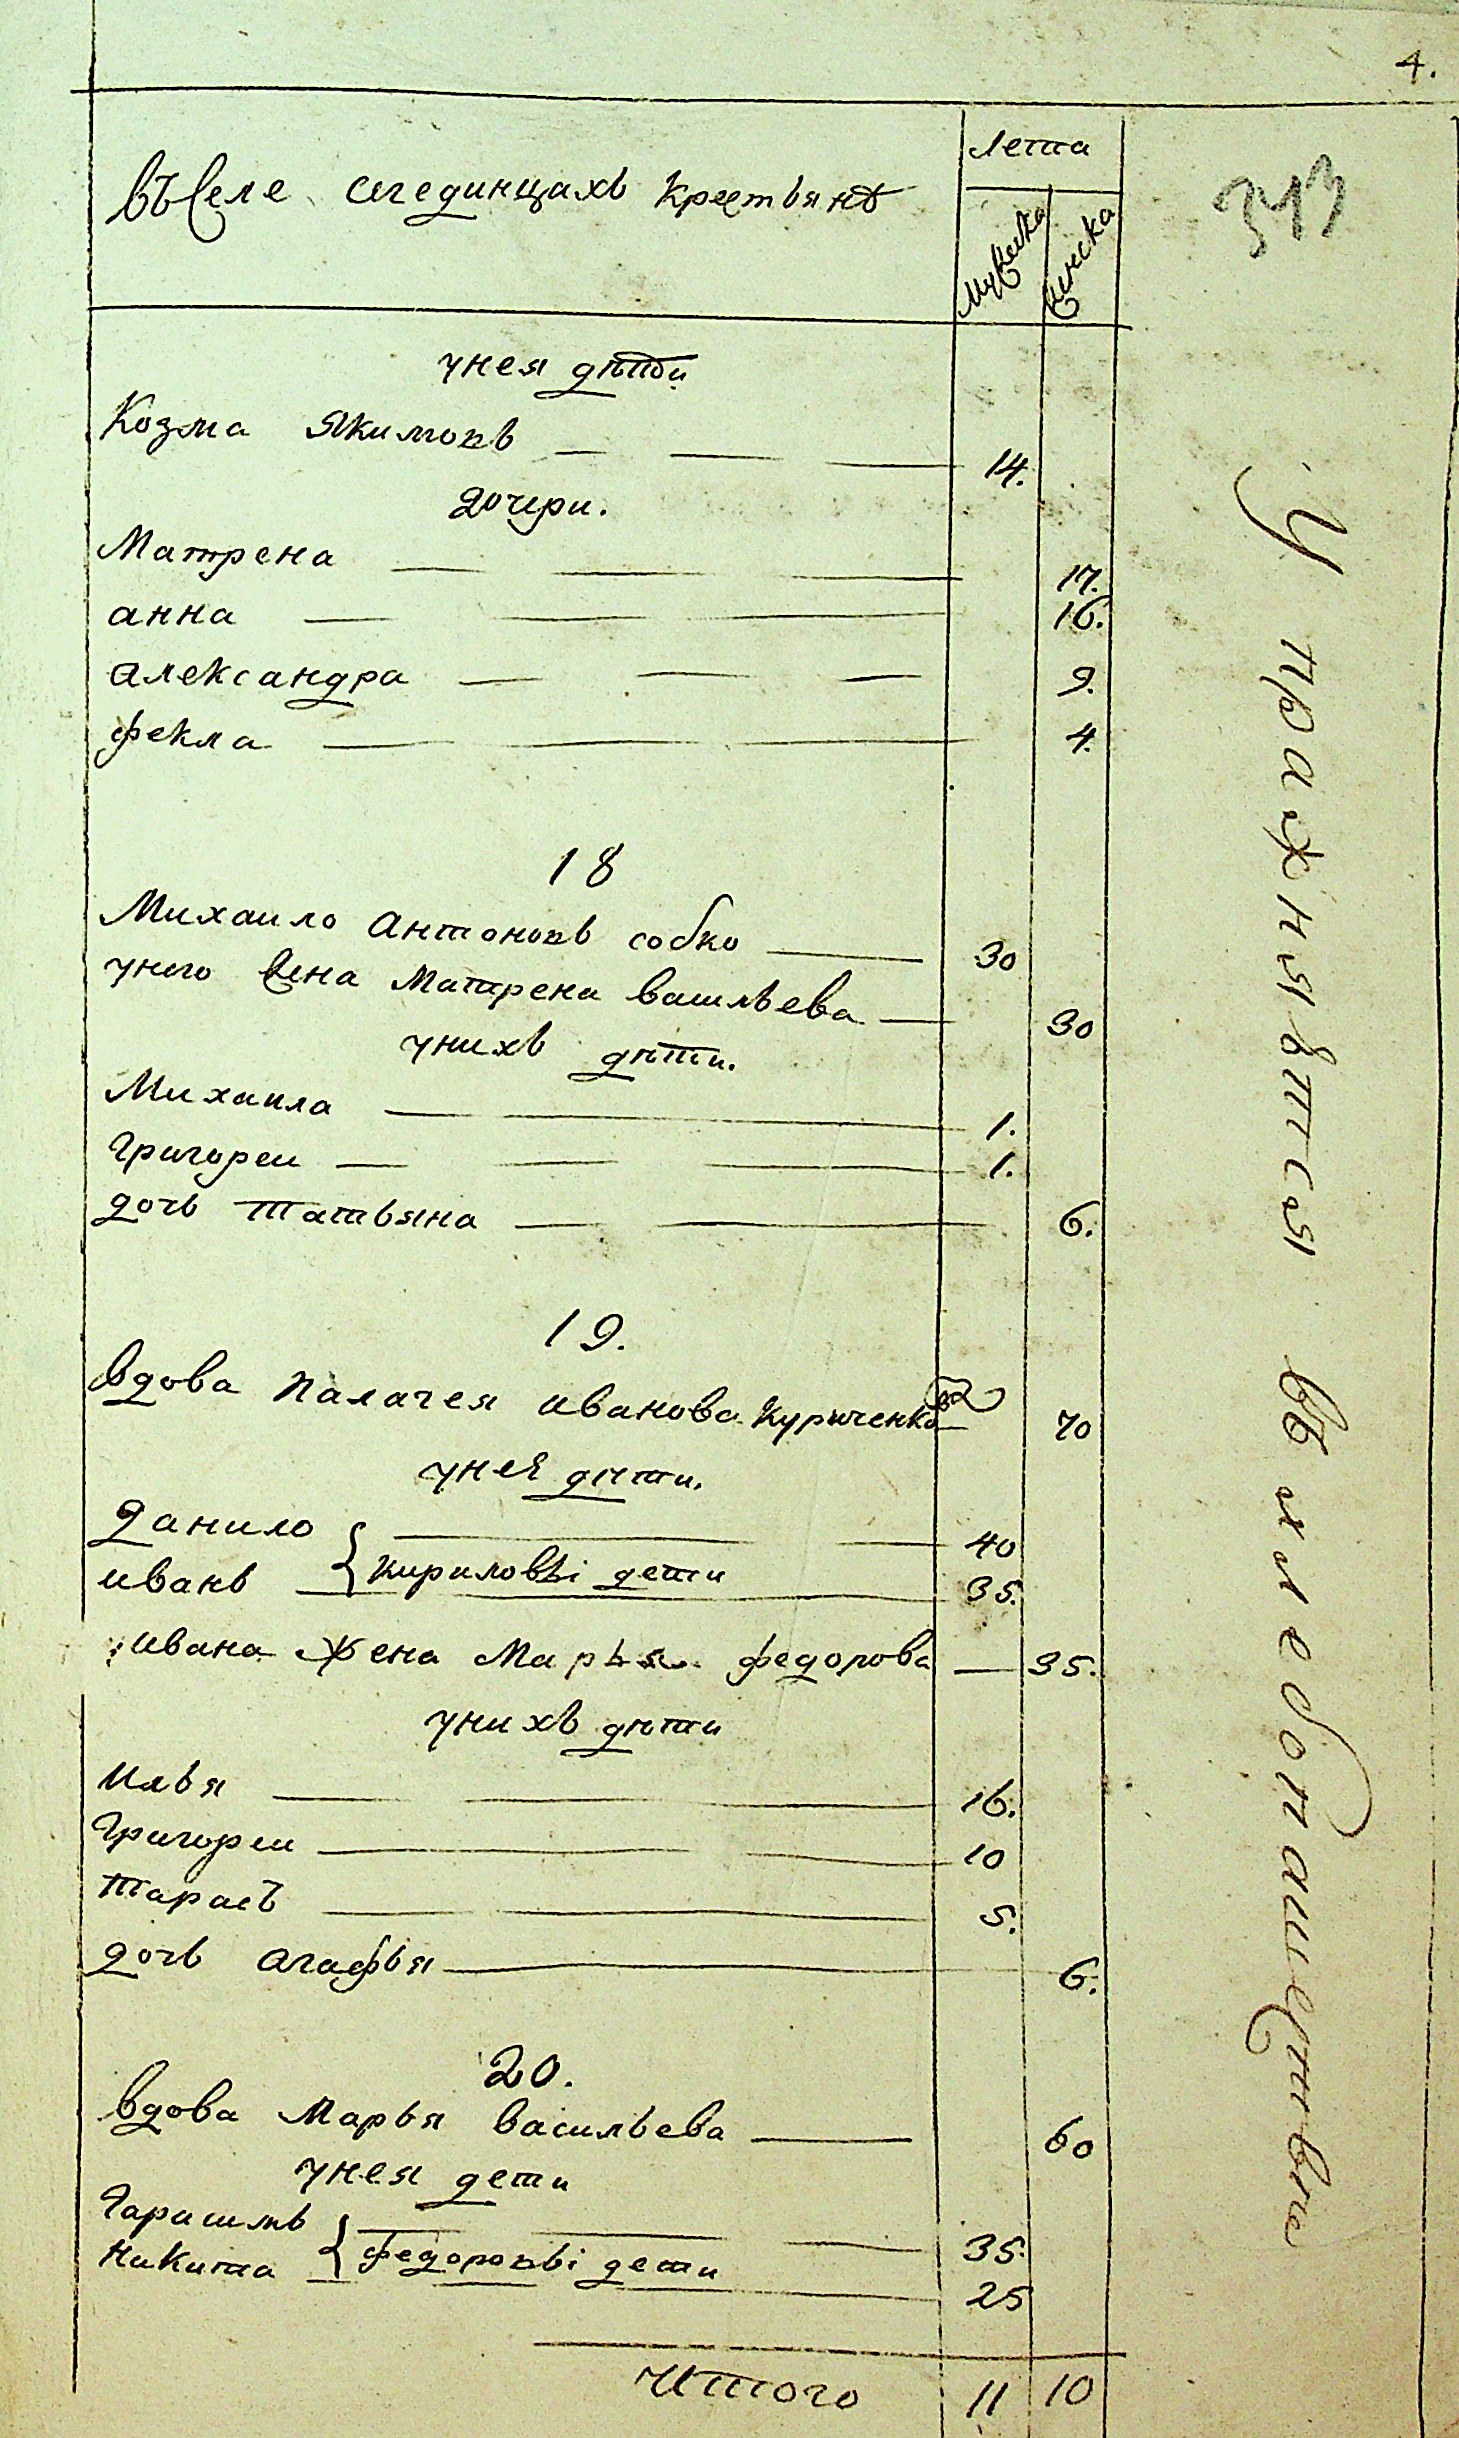 4.
въ селе сагединцахъ крестьянъ
Лета
Мужеска
Женска
343
у нея дѣти
Козма Якимовъ 14.
дочери.
Матрена 17.
анна 16.
александра 9.
фекла 4.
18
Михаило антоновъ собко 30
у него жена Матрена васильева 30
у нихъ дѣти.
Михаила 1.
Григореи 1.
дочь татьяна 6.
19.
вдова палагея иванова Куриченкова 70
у нея дѣти.
данило 40
иванъ { кириловы дети 35.
ивана жена Марья федорова 35.
у нихъ дѣти
илья 16.
Григореи 10
тарасъ 5.
дочь агафья 6.
20.
вдова Марья васильева 60
у нея дети
Гарасимъ 35.
Никита { федоровы дети 25
Итого 11 10
Упражняются въ хлебопашестве